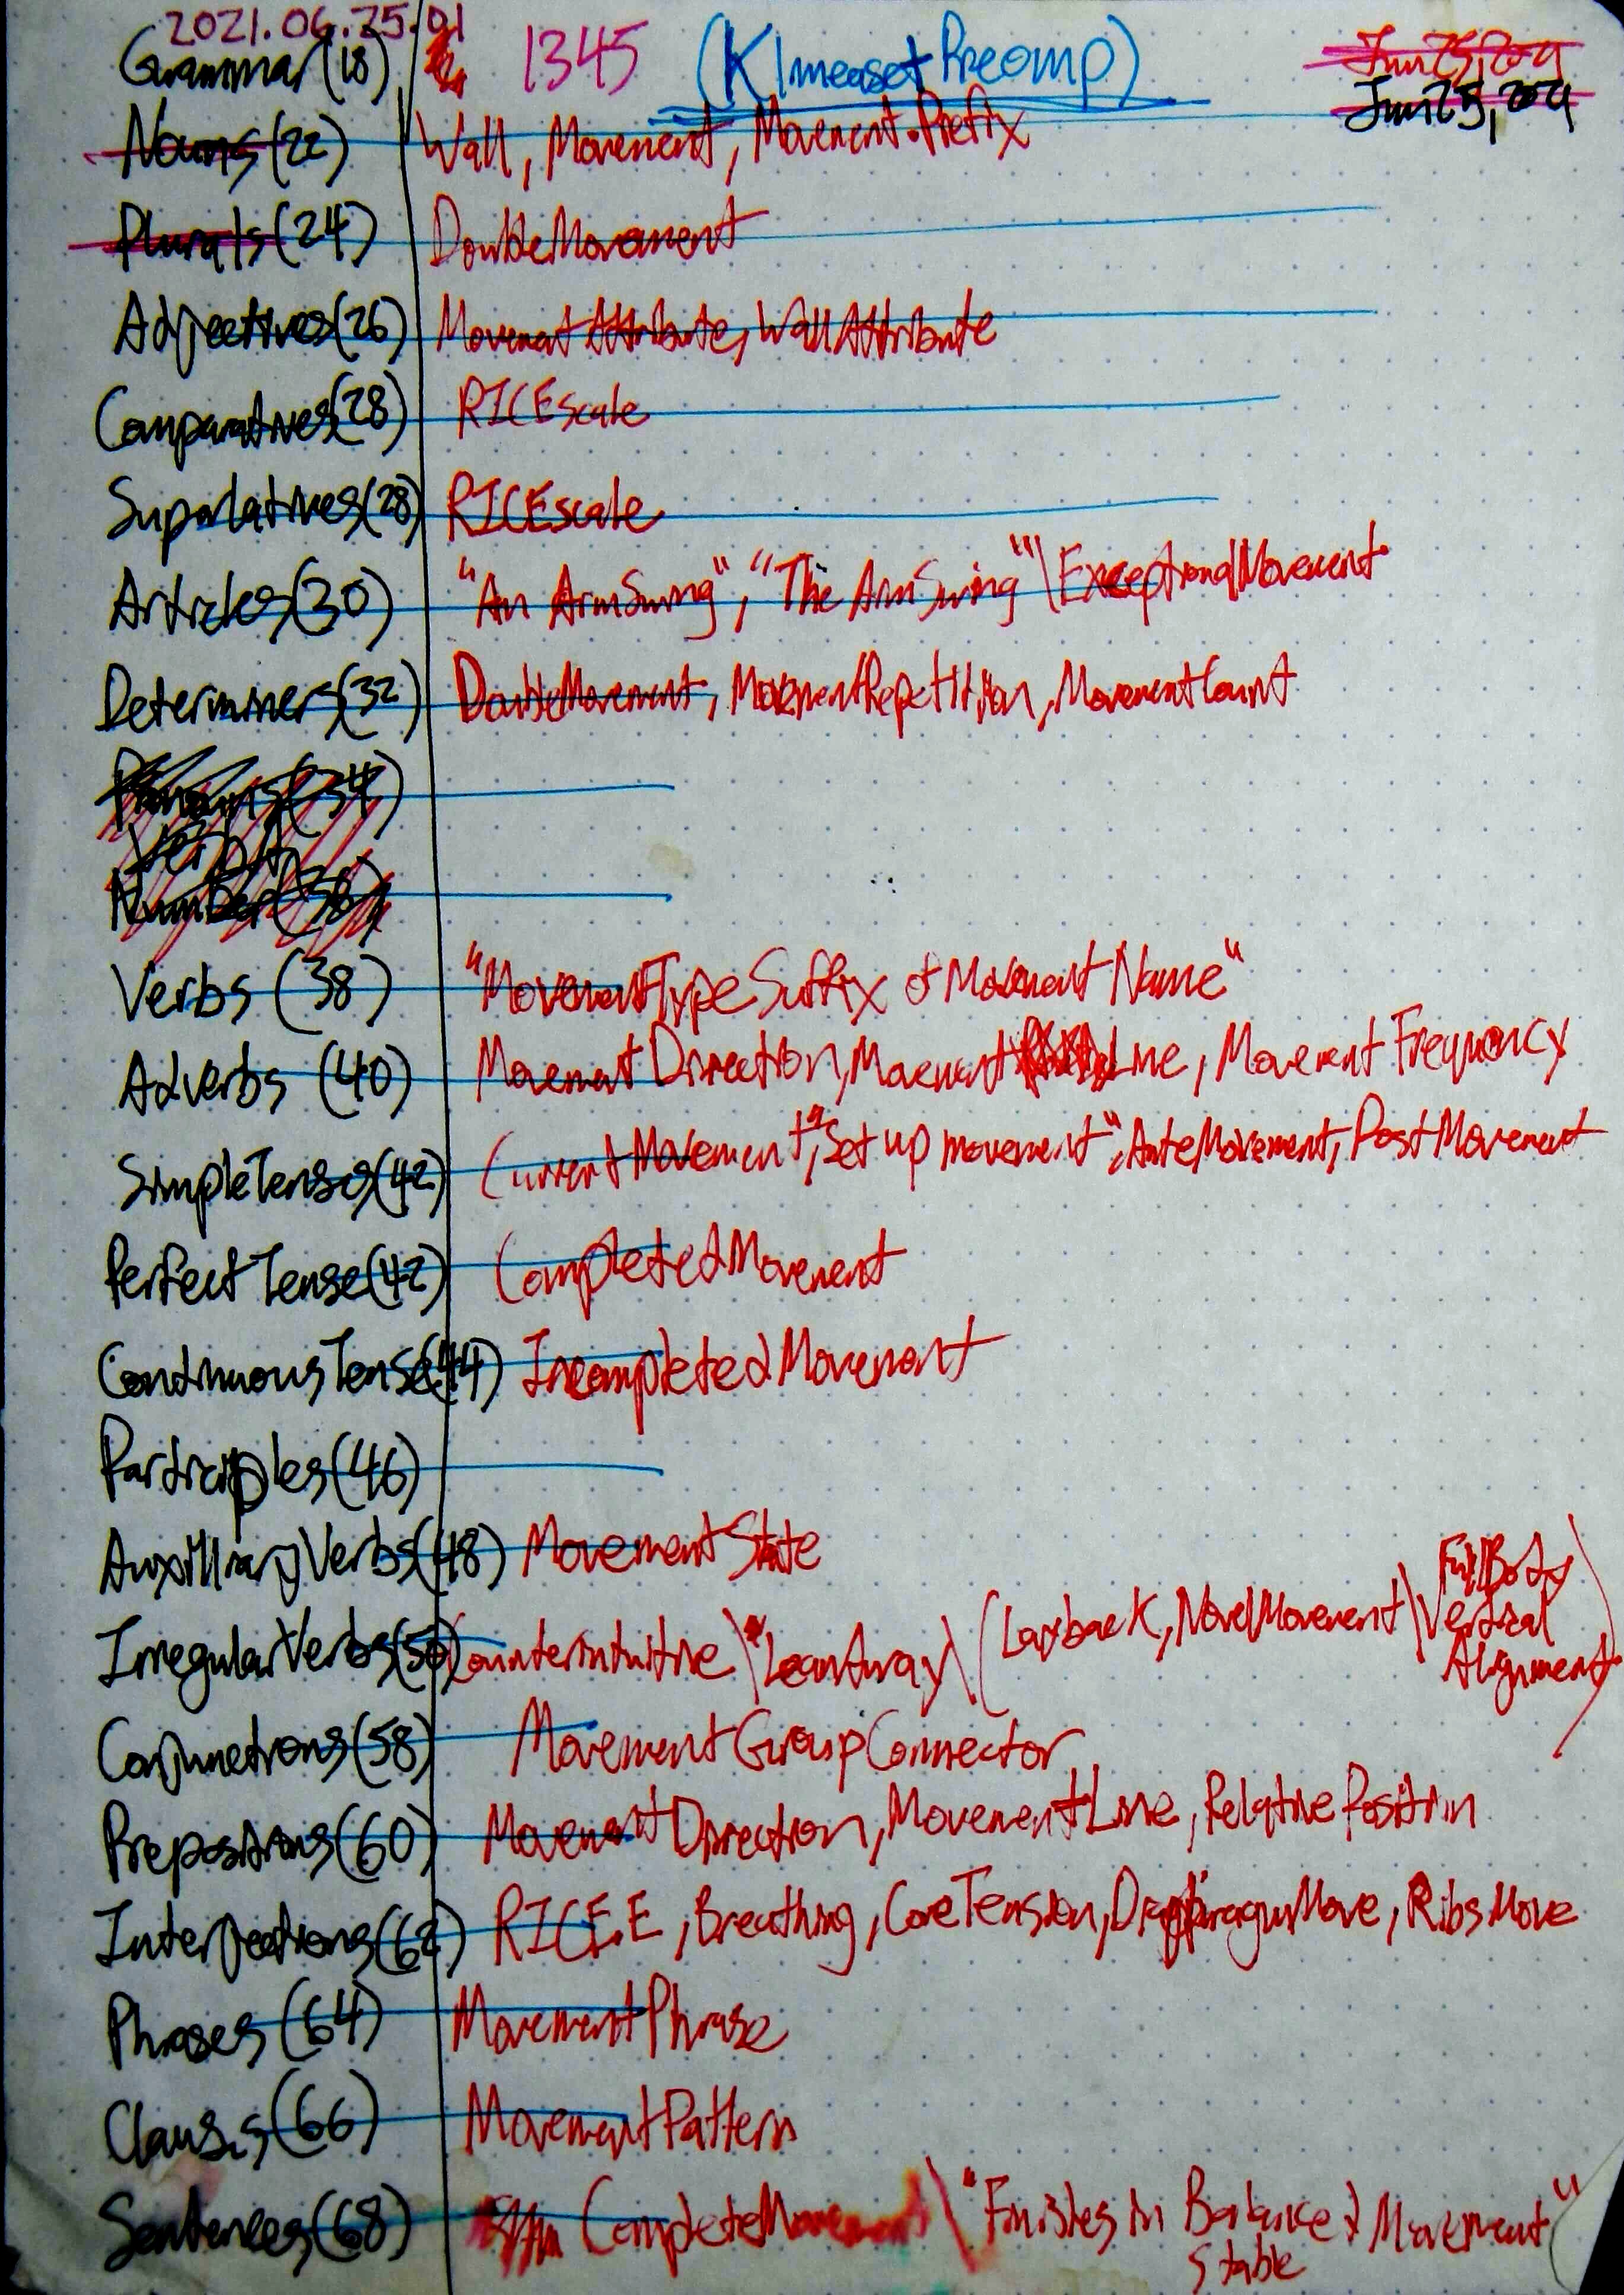 2021.06.25.01
Grammar(18) 1345 (KlmeasetPreomp) Jun 25, 2021
Jun 25, 2021
Nouns(22) Wall, Movement, Movement.Prefix
Plurals(24) DoubleMovement
Adjectives(26) MovementAttribute, WallAttribute
Comparatives(28) RICEscale
Superlatives(28) RICEscale
Articles(30) "An ArmSwing", "The ArmSwing"\ExceptionalMovement
Determiners(32) DoubleMovement, MovementRepetition, MovementCount
Pronouns(34)
Verb
Number(36)
Verbs (38) "MovementTypeSuffix of Movement Name"
Adverbs (40) MovementDirection, Movement Line, Movement Frequency
SimpleTenses(42) CurrentMovement, "Set up movement", AnteMovement, PostMovement
Perfect Tense(42) CompletedMovement
ContinuousTense(44) IncompletedMovement
Participles(46)
AuxilliaryVerbs(48) MovementState
IrregularVerbs(50) Counterintuitive\"LeanAway\(Layback, NovelMovement\FullBody
Vertical
Alignment)
Conjunctions(58) MovementGroupConnector
Prepositions(60) MovementDirection, MovementLine, RelativePosition
Interjections(62) RICE.E, Breathing, CoreTension, DiaphragmMove, RibsMove
Phrases (64) MovementPhrase
Clauses(66) MovementPattern
Sentences(68) CompleteMovement\"Finishes in Balanced Movement"
Stable